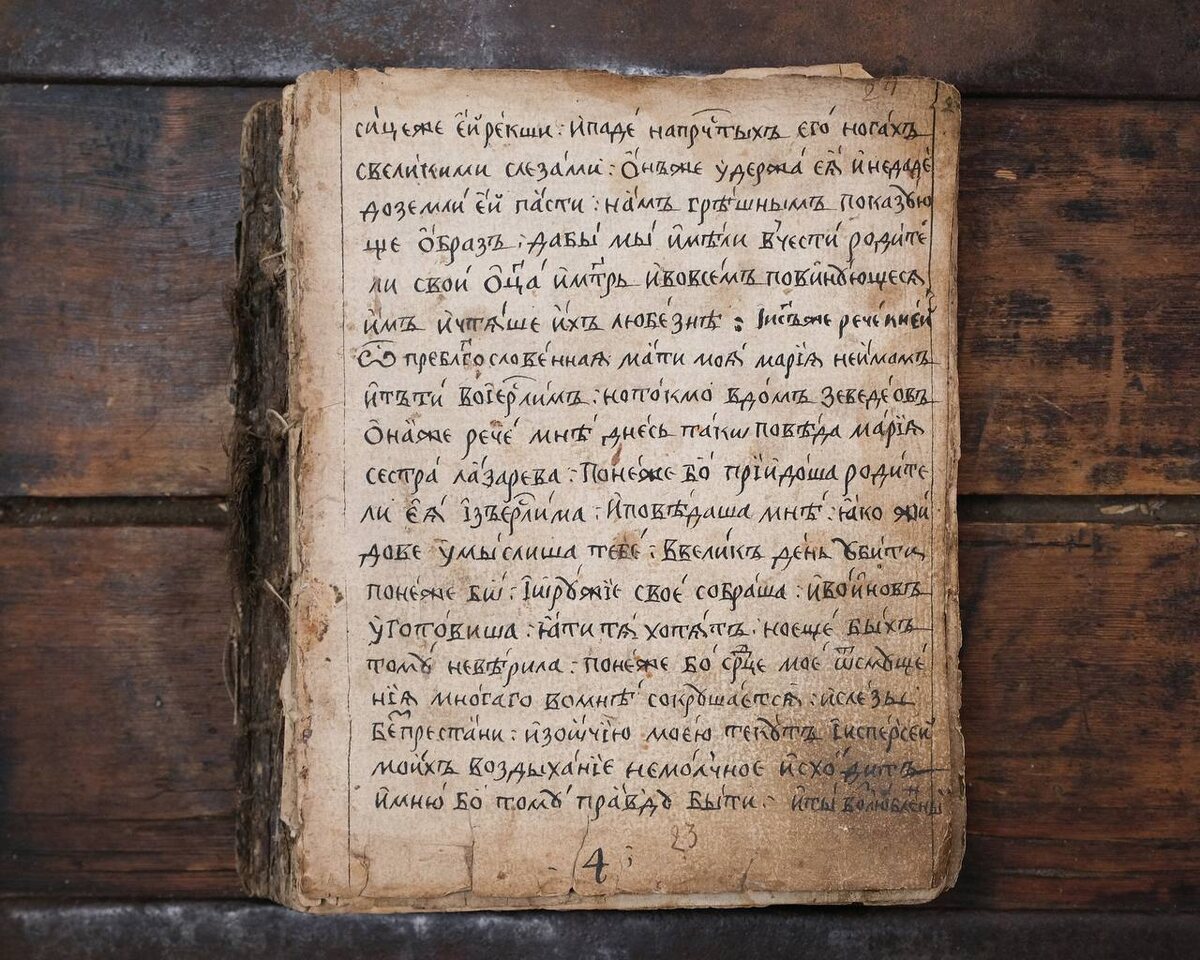 си́цеже е́й ре́кши : и҆паде́ напрⷭ҇тыхъ его̀ нога́хъ
свели́кими слеза́ми : Ѻ҆нъже ꙋ҆держа̀ еѧ̀ и҆недаде́
доземли́ е҆́й па́сти : на́мъ грѣ́шнымъ показꙋ́ю
ще ѻ҆́бразъ : дабы́ мы́ и҆мѣ́ли в̾чести́ роди́те
ли свои́ ѻ҆ц҃а̀ и҆мт҃рь и҆вовсе́мъ пови́нꙋющесѧ
и҆́мъ и҆чтѧ́ше и҆́хъ любе́знѣ : Іи҃съже рече́ кне́й
Ѽ пребл҃гослове́ннаѧ ма́ти моѧ̀ марі́ѧ неи́мамъ
и҆тъти́ воіер҃ли́мъ : ното́кмо вдо́мъ зеведе́овъ
Ѻ҆на́же рече́ мнѣ́ дне́сь па́ки повѣ́да марі́ѧ
сестра̀ ла́зарева : Поне́же бо̀ прїидо́ша роди́те
ли еѧ̀ і҆зъер҃ли́ма : И҆повѣ́даша мнѣ̀ : ꙗ҆́ко жи́
дове ᲂу҆мы́слиша тебе́ : Ввели́къ де́нь ᲂу҆би́ти
поне́же бѡ̀ : І҆и҆рꙋ́жїе свое́ собра́ша : и҆во́иновъ
ᲂу҆гото́виша : ꙗ҆́ти тѧ̀ хотѧ́тъ . ноеще́ бы́хъ
томꙋ̀ невѣ́рила : поне́же бо̀ срⷣце мое́ ѿсмꙋще́
нїѧ мно́гаго вомнѣ̀ сокрꙋша́етсѧ : и҆сле́зы
бепреста́ни : и҆зо́чїю моє́ю текꙋ́тъ І҆испе́рсей
мои́хъ воздыха́нїе немо́лчное и҆схо́дитъ
и҆мню̀ бо̀ томꙋ̀ пра́вдꙋ бы́ти : и҆ты̀ во́любле́ный
23
4